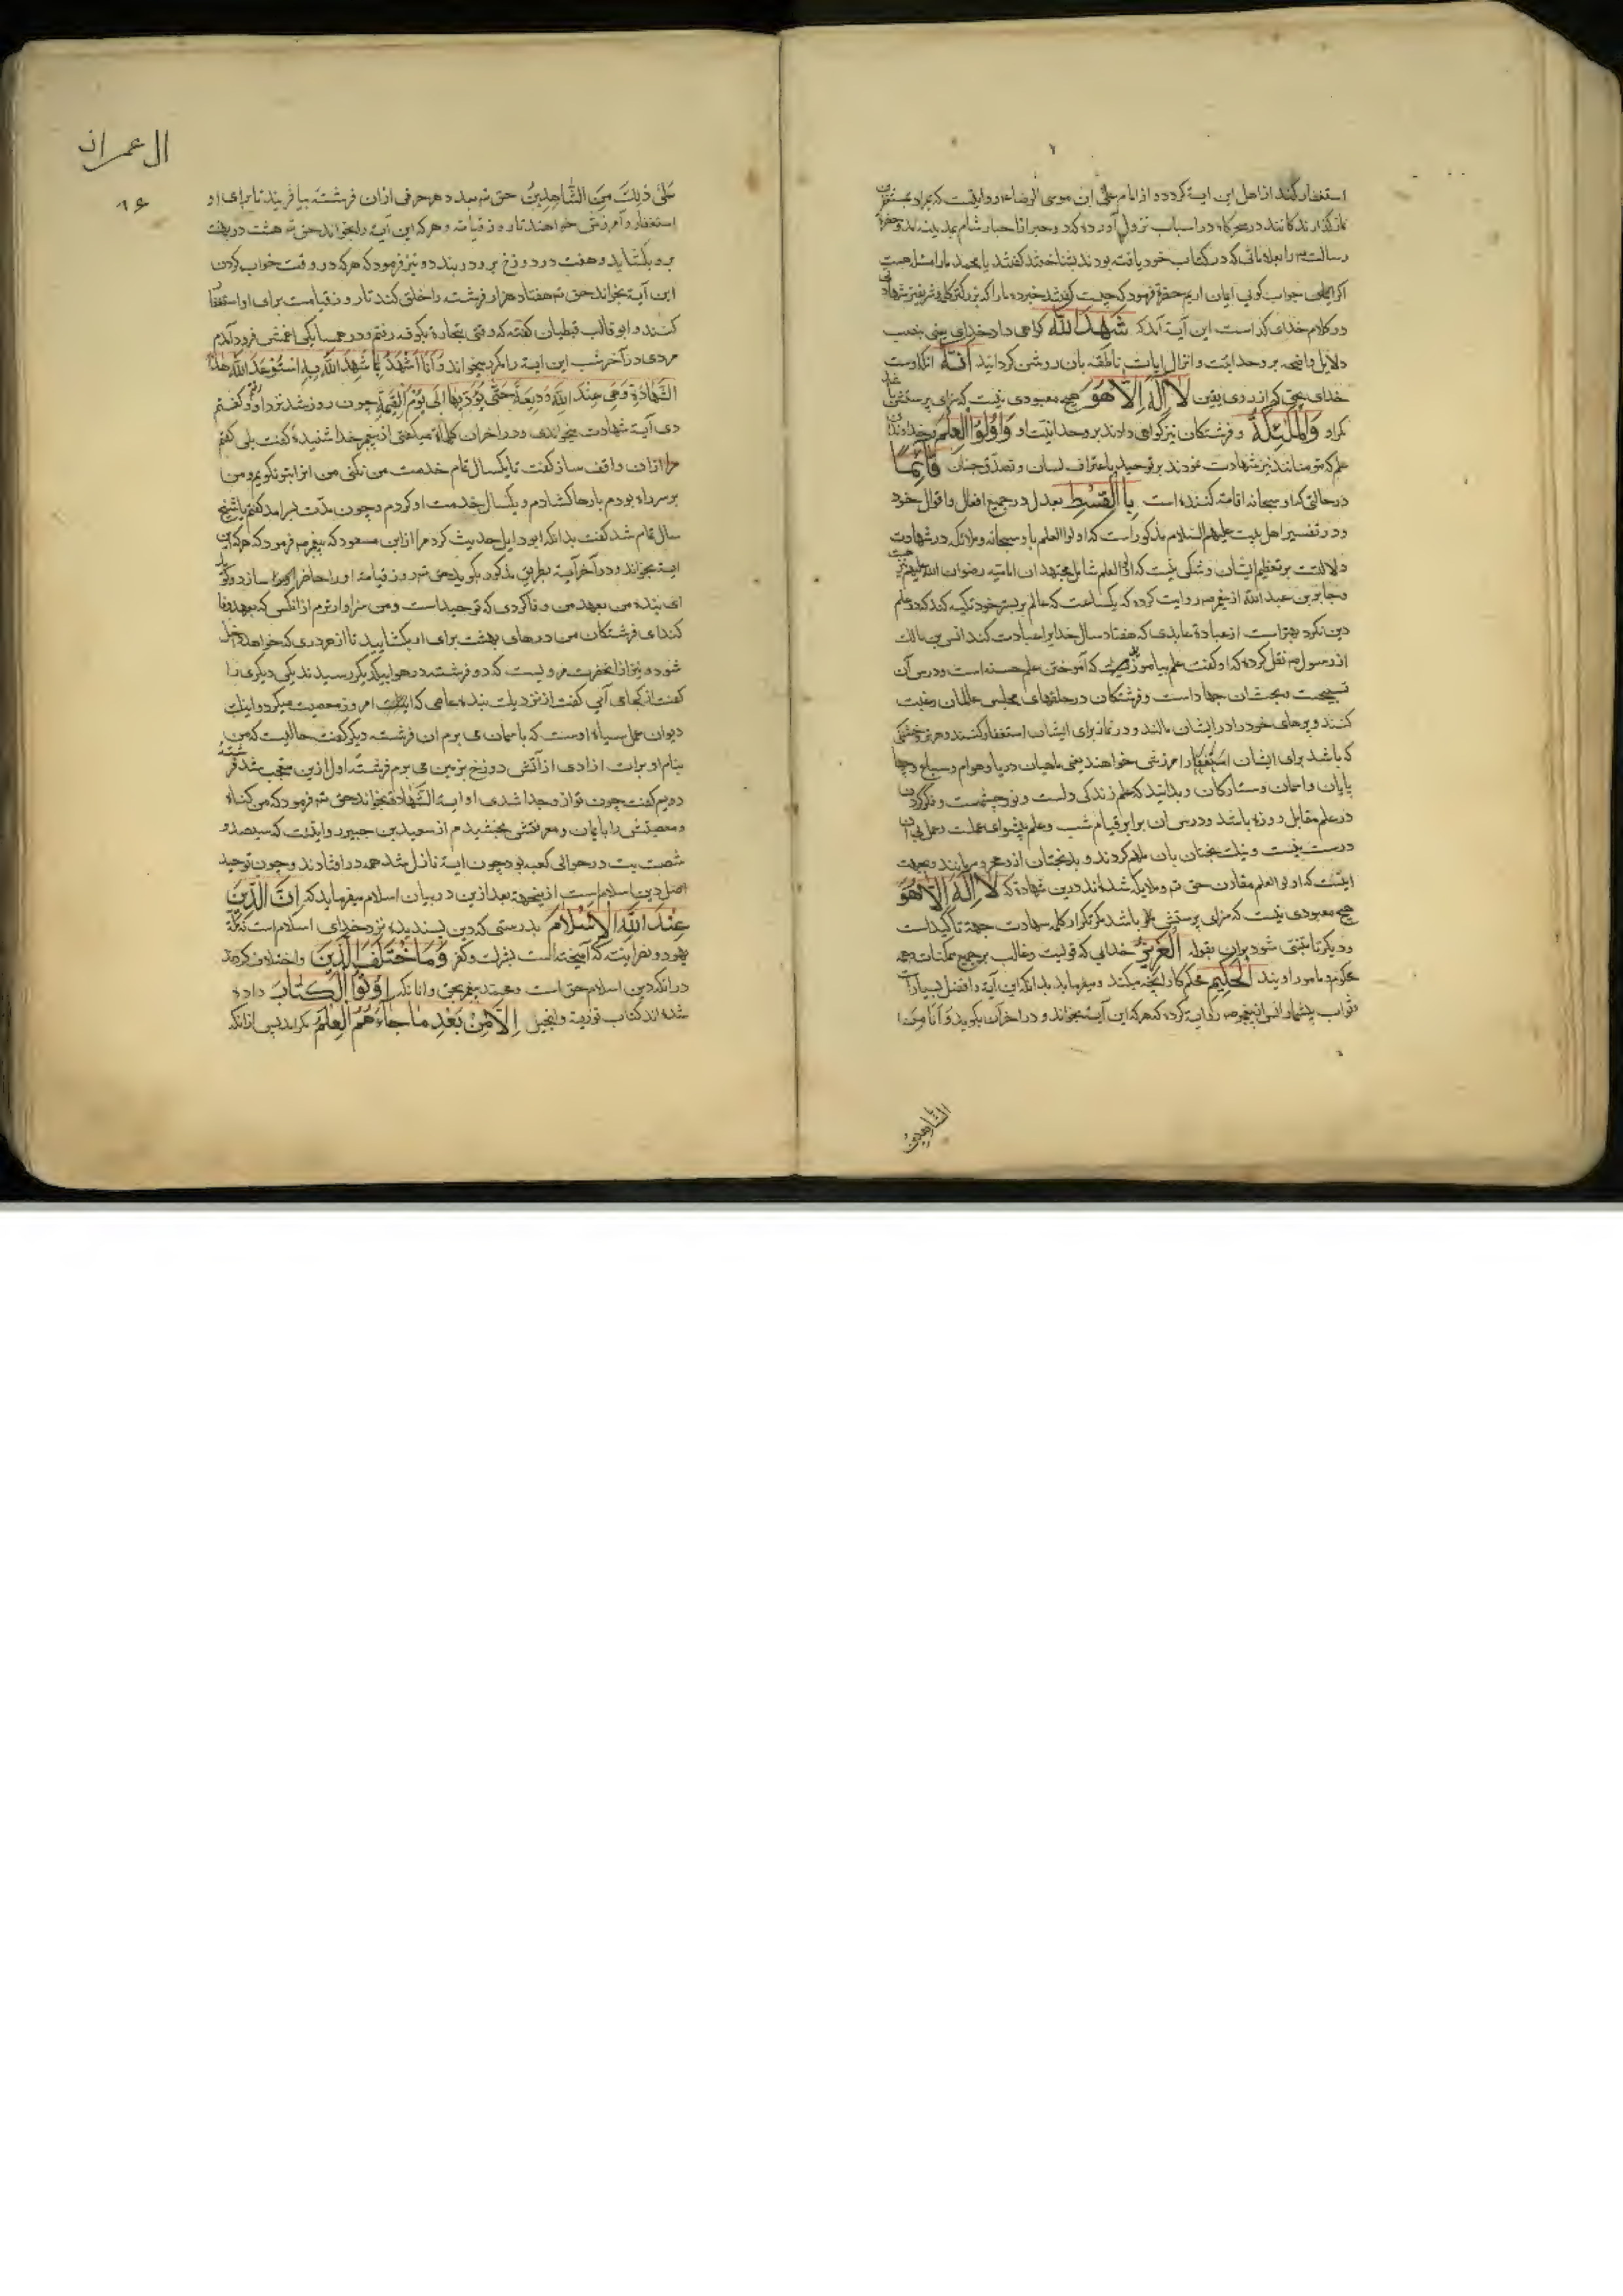 استغفار کند از اهل این ایه کردد و از امام علی ابن موسی الرضاء روایتست که مراد
نماز گذارندکانند در سحرکاه و در اسباب نزول آورده که دو حبر از احبار شام بمدینه امدند و حضرة
رسالت را بعلاماتی که در کتاب خود یافته بودند بشناختند گفتند یا محمد ما را مسئله هست
اکر جواب کویی ایمان اریم حضرة فرمود که چیست گفتند خبر ده ما را که بزرکتر و شریفتر شهادتی
در کلام خدای کدامست این آیة آمد که شَهِدَ اللّٰه کواهی داد خدای یعنی بنصب
دلایل واضحه بر وحدانیت و انزال ایات ناطقه بان روشن کردانید اَنَّهُ انکه اوست
خدای بحق که از روی یقین لَا اِلٰهَ اِلَّا هُوَ هیچ معبودی نیست که سزای پرستش باشد
مکر او وَالْمَلٰئِکَةُ و فرشتکان نیز کواهی دادند بر وحدانیت او وَاُولُوا الْعِلْمِ و خداوندان
علم که مومنانند نیز شهادت نمودند بر توحید باعتراف لسان و تصدیق جنان قَائِمًا
در حالتی که او سبحانه اقامة کننده است بِالْقِسْطِ بعدل در جمیع افعال و اقوال خود
و در تفسیر اهل بیت علیهم السلام مذکور است که اولوا العلم با او سبحانه و ملائکه در شهادت
دلالتست بر تعظیم ایشان و شکی نیست که اولوا العلم شامل مجتهدان امامیه رضوان الله علیهم
و جابر بن عبد الله از پیغمبر ص روایت کرده که یکساعت که عالم بر بستر خود تکیه کند که در علم
دین نکرد بهتر است از عبادة عابدی که هفتاد سال خدایرا عبادت کند انس بن مالک
از رسول ص نقل کرده که او گفت علم بیاموزید که آموختن علم حسنه است و درس آن
تسبیحست و بحث ان جهاد است و فرشتکان در حلقهای مجلس عالمان رغبت
کنند و پرهای خود را در ایشان مالند و در نماز برای ایشان استغفار کنند و هر تر و خشکی
که باشد برای ایشان استغفار و امرزش خواهند یعنی ماهیان دریا و هوام و سباع و چهار
پایان و اسمان و ستارکان و بدانید که علم زندکی دلست و نور چشمست و فکر کردن
در علم مقابل روزه باشد و درس ان برابر قیام شب و علم پیشوای عملست و عمل بی آن
درست نیست و نیک بختان بان ملهم کردند و بدبختان از او محروم مانند و بجهت
اینست که اولوا العلم مقارن حق تعه و ملایکه شده اند درین شهادة که لَا اِلٰهَ اِلَّا هُوَ
هیچ معبودی نیست که سزای پرستش باشد مکر تکرار کلمه شهادت جهة تاکید است
و دیکر تا مبتنی شود بران بقوله الْعَزِیزُ خدایی که قویست و غالب بر جمیع ممکنات همه
محکوم و مامور او یند الْحَکِیمُ حکم کار انچه میکند و میفرماید بدانکه این آیة را فضل بسیار
ثواب بیشمار انس از پیغمبر ص روایة کرده که هرکه این آیة بخواند و در اخر آن بکوید وَ اَنَا مِنَ
الشاهدین
ال عمران
۱۶
عَلیٰ ذٰلِکَ مِنَ الشَّاهِدِینَ حق تعه بعدد هر حرفی از ان فرشته بیافریند تا برای او
استغفار و آمرزش خواهند تا روز قیامة و هرکه این آیة را بخواند حق تعه هشت در بهشت
بر او بکشاید و هفت در دوزخ بر او در بندد و نیز فرمود که هرکه در وقت خواب کردن
این آیة بخواند حق تعه هفتاد هزار فرشته را خلق کند تا روز قیامت برای او استغفار
کنند و ابو غالب قطان گفته که وقتی بتجارة بکوفه رفتم و در همسایکی اعمش فرود آمدم
مردی در آخر شب این ایة را مکرر میخواند وَ اَنَا اَشْهَدُ بِمَا شَهِدَ اللّٰهُ بِهِ اَسْتَوْدِعُ اللّٰهَ هٰذِهِ
الشَّهَادَةِ وَ هِیَ عِنْدَ اللّٰهِ وَدِیعَةٌ حَتّٰی یُؤَدِّیَهَا اِلٰی یَوْمِ الْقِیٰمَةِ چون روز شد نزد او رفتم و گفتم
دی آیة شهادت میخواندی و در اخر ان کلمات میکفتی از پیغمبر خدا شنیده گفت بلی گفتم
مرا از ان واقف ساز گفت تا یکسال تمام خدمت من نکنی من انرا بتو نکویم و من
بر سر راه بودم بارها کشادم و یکسال خدمت او کردم و چون مدت برامد گفتم یا شیخ
سال تمام شد گفت بدانکه ابو وایل حدیث کرد مرا از ابن مسعود که پیغمبر ص فرمود که هرکه این
ایة بخواند و در آخر آیة بطریق مذکور بکوید حق تعه روز قیامة او را حاضر سازد و کوید
ای بنده من بعهد من وفا کردی که توحید است و من سزاوارترم از انکس که بعهد وفا
کند ای فرشتکان من درهای بهشت برای او بکشایید تا از هر دری که خواهد داخل
شود و نیز از انحضرت مرویست که دو فرشته در هوا بیکدیکر رسیدند یکی دیکری را
گفت از کجا می آیی گفت از نزدیک بنده عاصی که امروز معصیت میکرد و اینک
دیوان عمل سیاه اوست که باسمان می برم ان فرشته دیکر گفت حالیست که من
بنام او برات ازادی از آتش دوزخ بزمین می برم فرشته اول ازین متعجب شد فرشته
دویم گفت چون تو از و جدا شدی او ایة الشهادة بخواند حق تعه فرمود که من کناه
و معصیتش را بایمان و معرفتش بخشیدم از سعید بن جبیر روایتست که سیصد و
شصت بت در حوالی کعبه بود چون ایة نازل شد همه در افتادند و چون توحید
اصل دین اسلام است ازینجهة بعد ازین در بیان اسلام میفرماید که اِنَّ الدِّینَ
عِنْدَ اللّٰهِ الْاِسْلَامُ بدرستی که دین پسندیده نزد خدای اسلام است نه
یهود و نصرانیت که آمیخته است بشرک و کفر وَ مَا اخْتَلَفَ الَّذِینَ و اختلاف نکردند
در انکه دین اسلام حق است و محمد پیغمبر بحق و انانکه اُوتُوا الْکِتَابَ داده
شده اند کتاب توریة و انجیل اِلَّا مِنْ بَعْدِ مَا جَاءَهُمُ الْعِلْمُ مکر از پس ازانکه